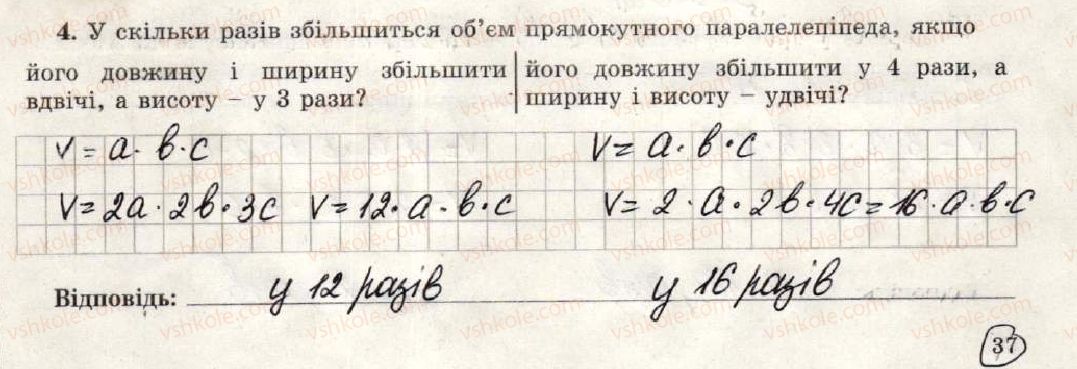 4. У скільки разів збільшиться об'єм прямокутного паралелепіпеда, якщо
його довжину і ширину збільшити
вдвічі, а висоту – у 3 рази?
його довжину збільшити у 4 рази, а
ширину і висоту – удвічі?
V = a · в · c
V = 2a · 2в · 3c V = 12 · a · в · c
V = a · в · c
V = 2 · a · 2в · 4c = 16 · a · в · c
Відповідь: у 12 разів у 16 разів
37